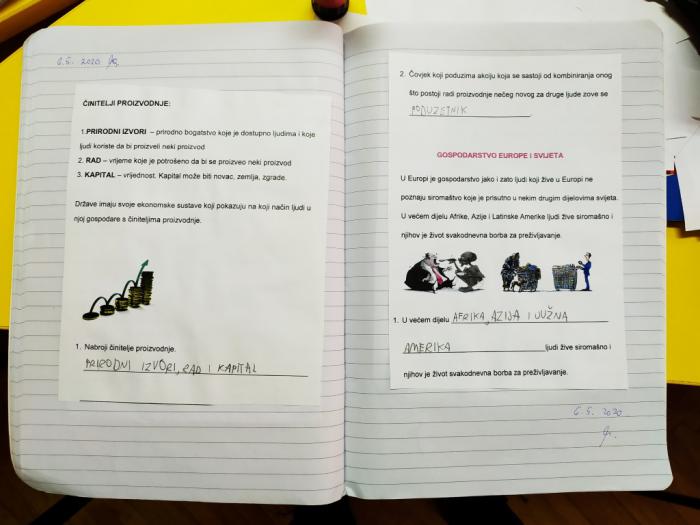 6.5. 2020.
ČINITELJI PROIZVODNJE:
1.PRIRODNI IZVORI – prirodno bogatstvo koje je dostupno ljudima i koje
ljudi koriste da bi proizveli neki proizvod
2. RAD – vrijeme koje je potrošeno da bi se proizveo neki proizvod
3. KAPITAL – vrijednost. Kapital može biti novac, zemlja, zgrade.
Države imaju svoje ekonomske sustave koji pokazuju na koji način ljudi u
njoj gospodare s činiteljima proizvodnje.
1. Nabroji činitelje proizvodnje.
PRIRODNI IZVORI, RAD I KAPITAL
2. Čovjek koji poduzima akciju koja se sastoji od kombiniranja onog
što postoji radi proizvodnje nečeg novog za druge ljude zove se
PODUZETNIK
GOSPODARSTVO EUROPE I SVIJETA
U Europi je gospodarstvo jako i zato ljudi koji žive u Europi ne
poznaju siromaštvo koje je prisutno u nekim drugim dijelovima svijeta.
U većem dijelu Afrike, Azije i Latinske Amerike ljudi žive siromašno i
njihov je život svakodnevna borba za preživljavanje.
1. U većem dijelu AFRIKA, AZIJA I JUŽNA
AMERIKA ljudi žive siromašno i
njihov je život svakodnevna borba za preživljavanje.
6.5. 2020.